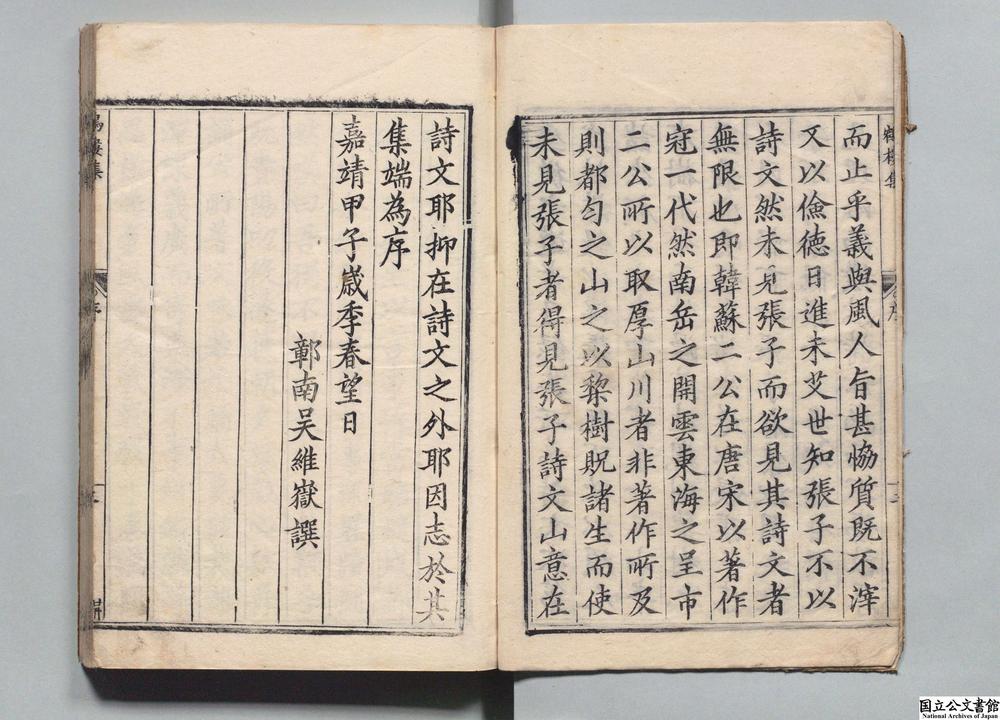 而止乎義與風人旨甚恊質既不滓
又以儉徳日進未艾世知張子不以
詩文然未見張子而欲見其詩文者
無限也即韓蘇二公在唐宋以著作
冠一代然南岳之開雲東海之呈市
二公所以取厚山川者非著作所及
則都匀之山之以棃樹貺諸生而使
未見張子者得見張子詩文山意在
詩文耶抑在詩文之外耶因志於其
集端為序
嘉靖甲子嵗季春望日
鄣南吴維嶽譔
序
国立公文書館
National Archives of Japan